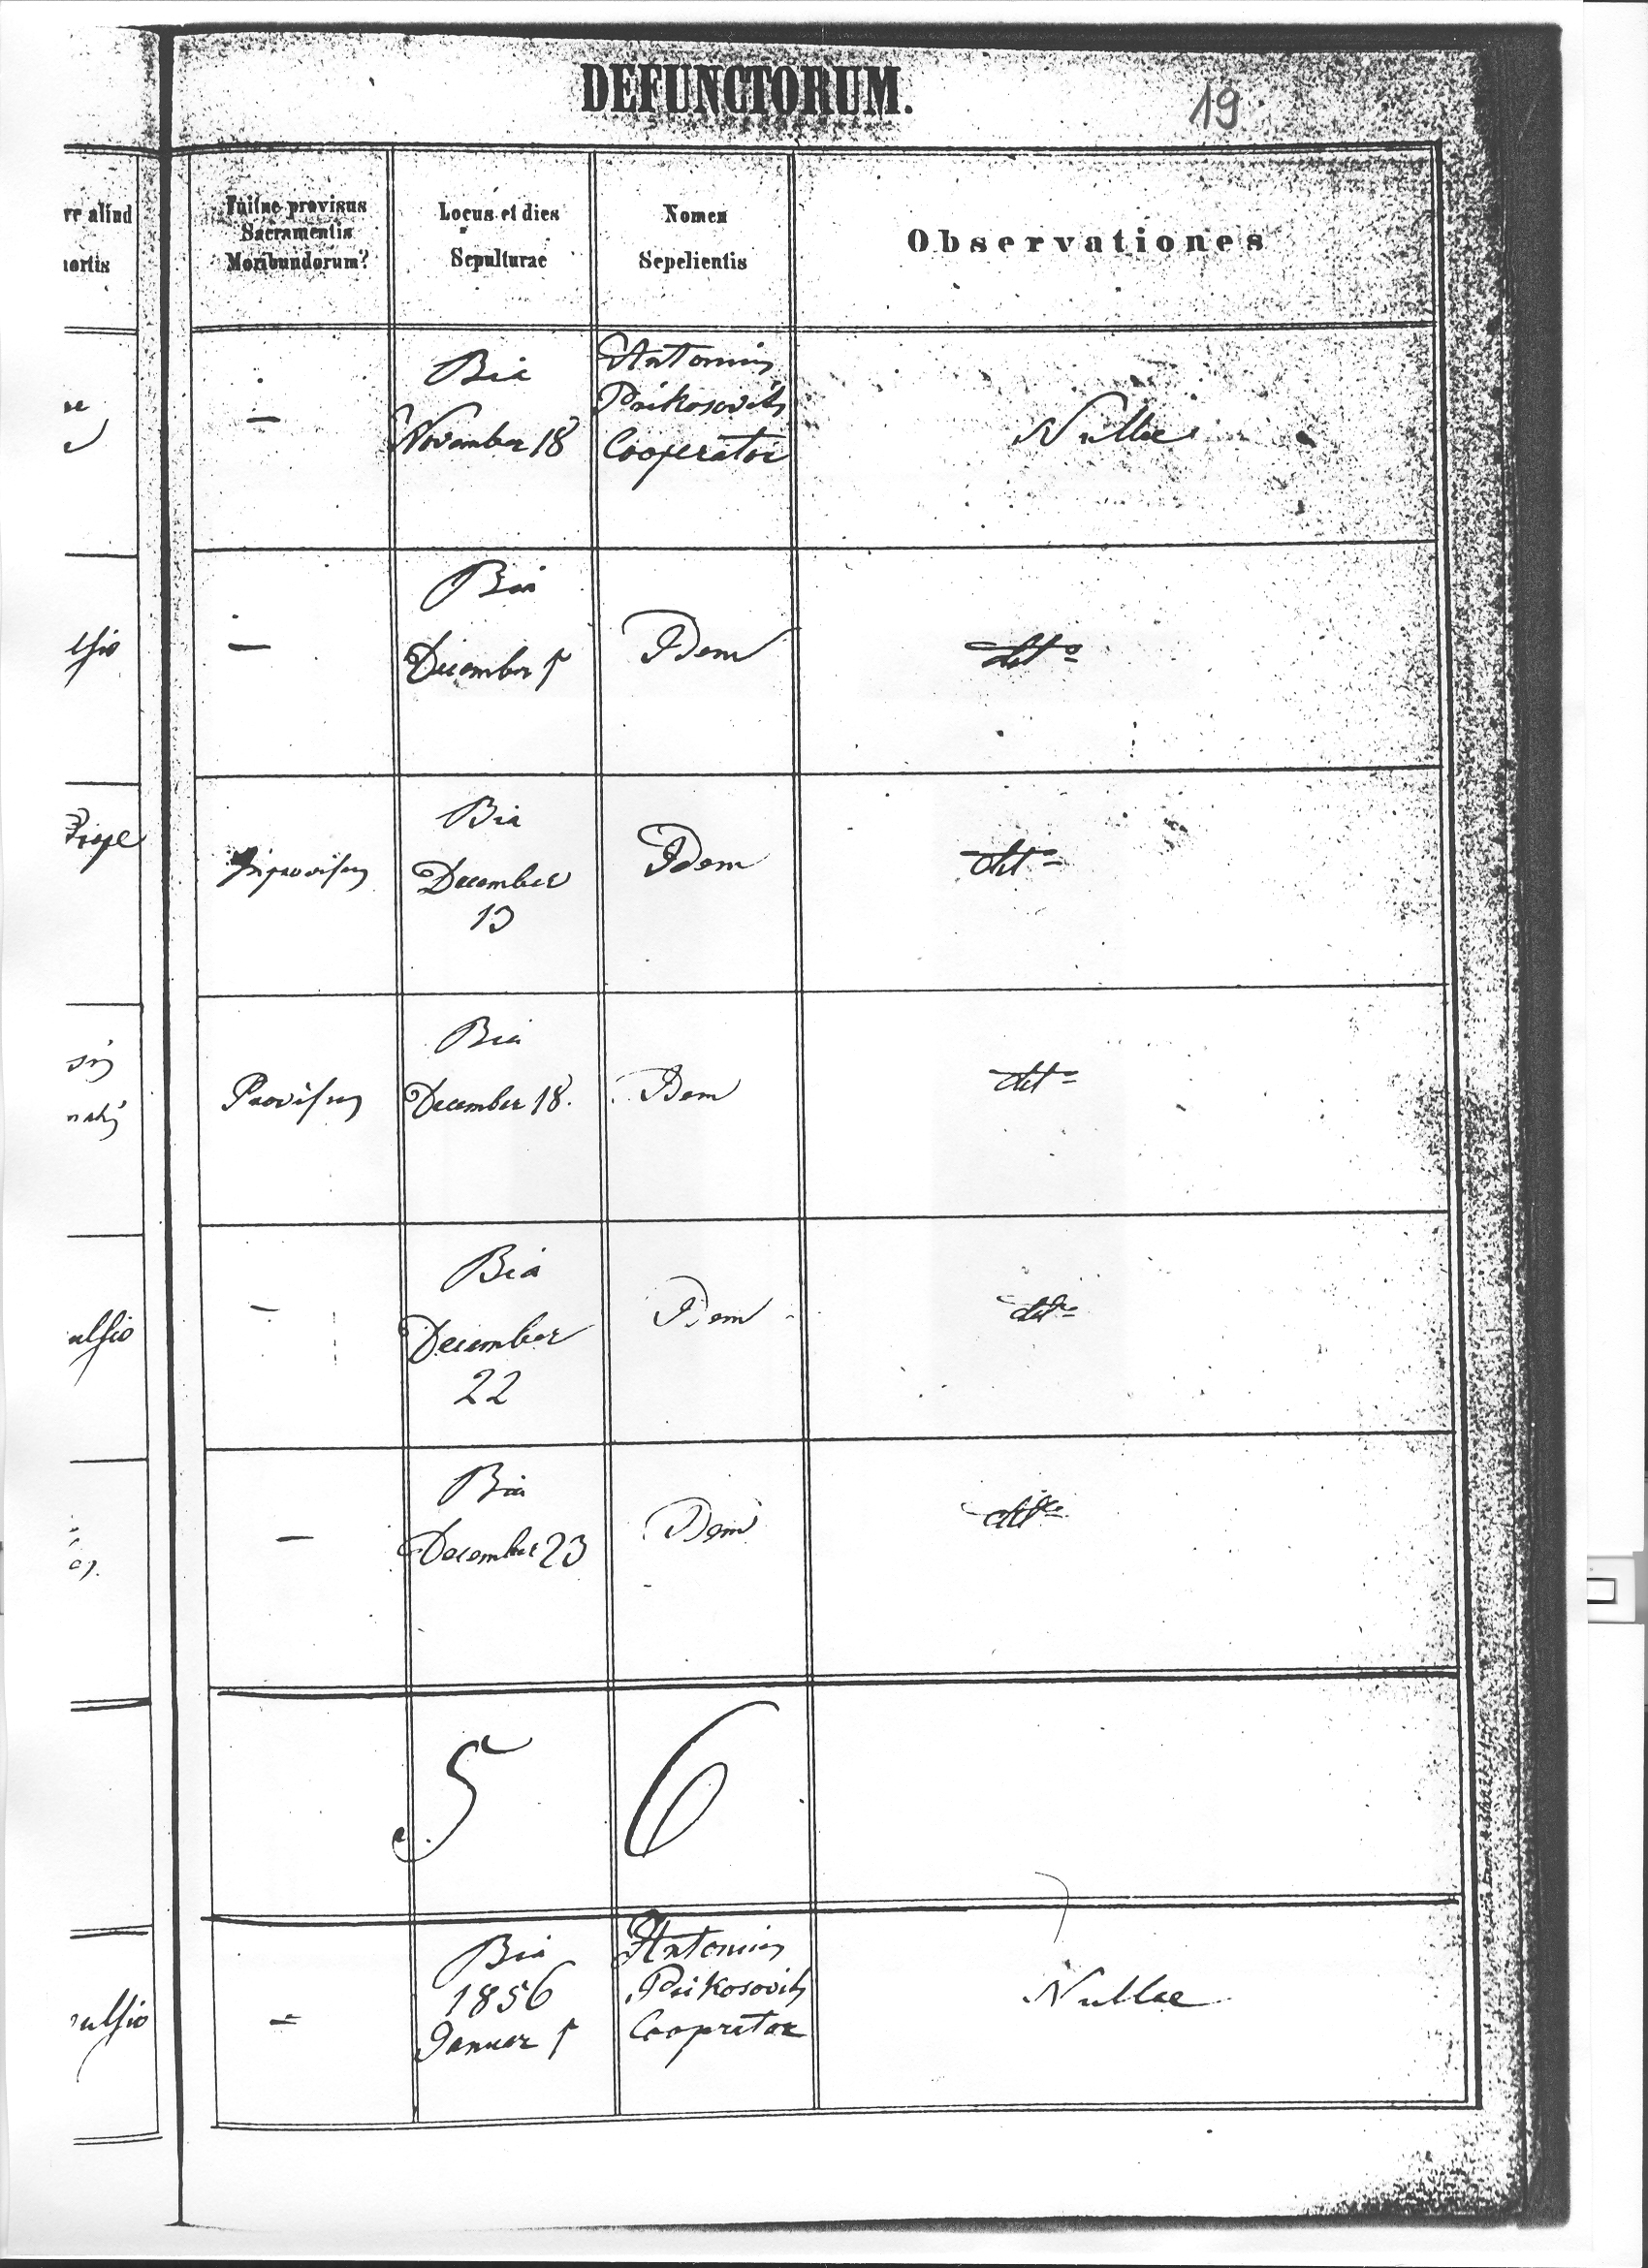 DEFUNCTORUM.
19
re aliud
ortis
Fuitne provisus
Sacramentis
Moribundorum?
Locus et dies
Sepulturae
Nomen
Sepelientis
Observationes
—
Bia
November 18
Antonius
Prikosovits
Cooperator
Nullae
—
Bia
December
Idem
detto
Improvisus
Bia
December
13
Idem
detto
Provisus
Bia
December 18.
Idem
detto
ulsio
—
Bia
December
22
Idem
detto
—
Bia
December 23
Idem
detto
5
6
ulsio
—
Bia
1856
Januar
Antonius
Prikosovits
Coopretor
Nullae